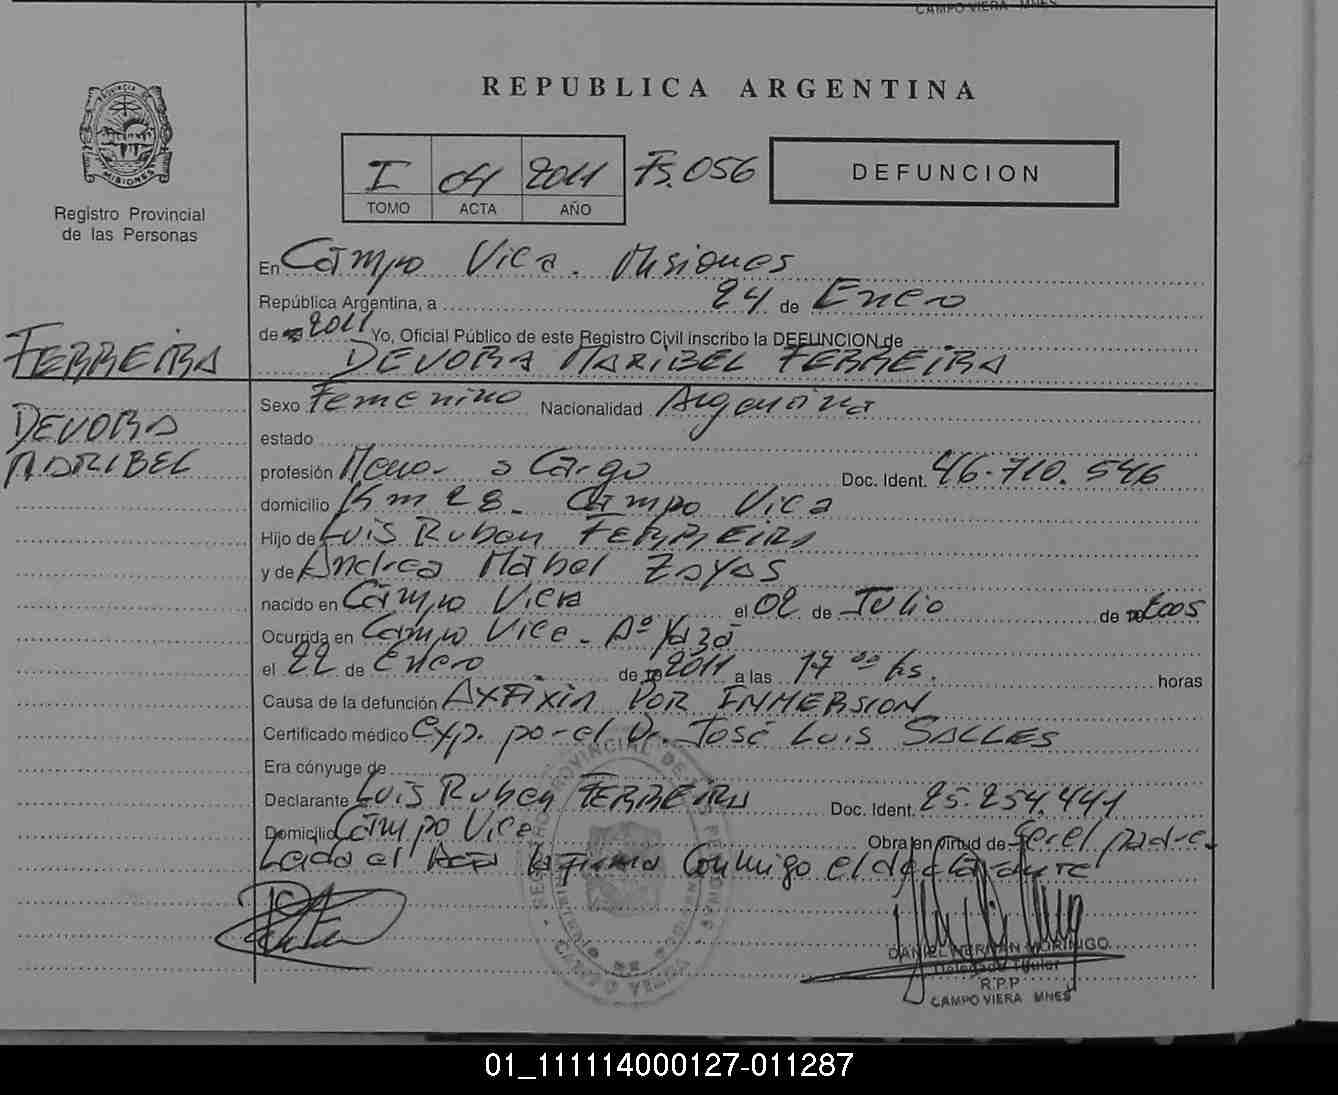 CAMPO VIERA MNES
REPUBLICA ARGENTINA
PROVINCIA DE MISIONES
Registro Provincial
de las Personas
I 04 2011 Fs. 056
TOMO ACTA AÑO
DEFUNCION
En Campo Viera. Misiones
República Argentina, a 24 de Enero
de 2011 Yo, Oficial Público de este Registro Civil inscribo la DEFUNCION de
FERREIRA DEVORA MARIBEL FERREIRA
DEVORA
MARIBEL
Sexo Femenino Nacionalidad Argentina
estado
profesión Menor a Cargo Doc. Ident. 46.710.546
domicilio Km 28. Campo Viera
Hijo de Luis Ruben FERREIRA
y de Andrea Mabel Zayas
nacido en Campo Viera el 02 de Julio de 2005
Ocurrida en Campo Viera - Aº Yazá
el 22 de Enero de 2011 a las 17 00 hs. horas
Causa de la defunción AXFIXIA POR INMERSION
Certificado médico exp. por el Dr. José Luis SALLES
Era cónyuge de
Declarante Luis Ruben FERREIRA Doc. Ident. 25.254.441
Domicilio Campo Viera Obra en virtud de Ser el padre.
Leida el Acta la firma conmigo el declarante
DANIEL HERNAN MORINIGO
Delegado Titular
R.P.P
CAMPO VIERA MNES
01_111114000127-011287